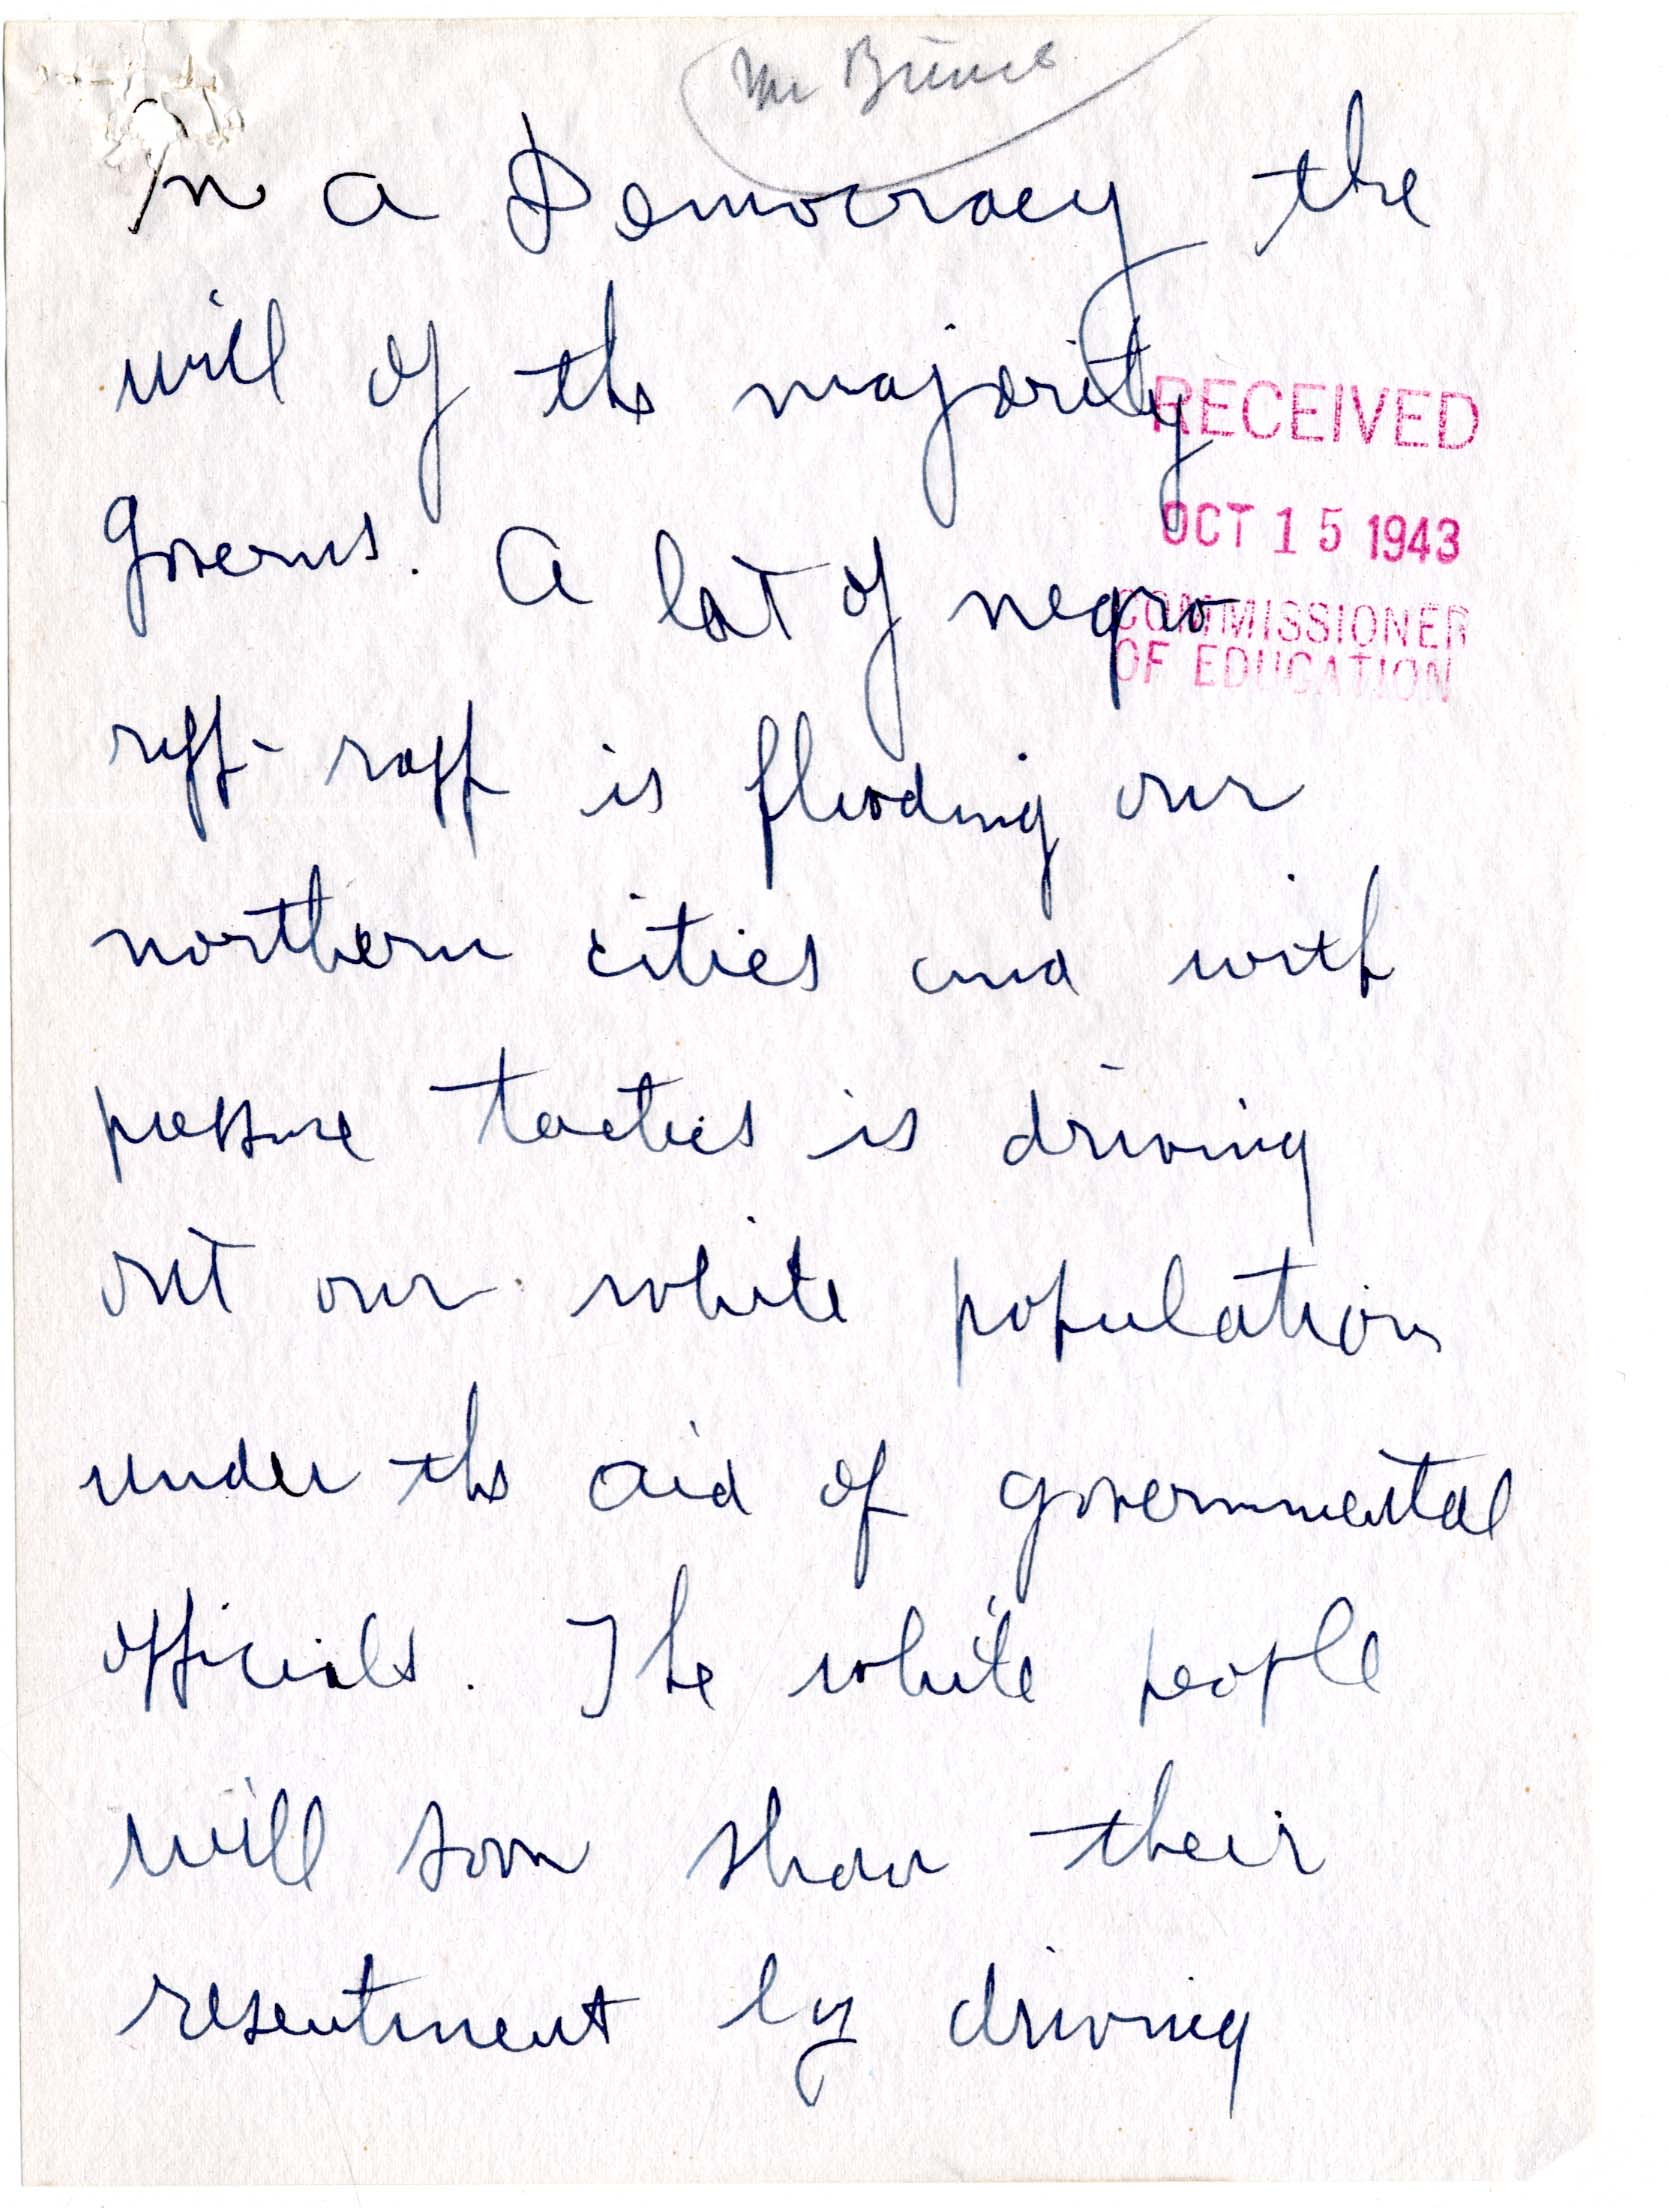 Mr Bunce
In a Democracy the
will of the majority
RECEIVED
OCT 15 1943
COMMISSIONER
OF EDUCATION
Governs. A lot of negro
riff-raff is flooding our
northern cities and with
pressure tactics is driving
out our white population
under the aid of governmental
officials. The white people
will soon show their
resentment by driving